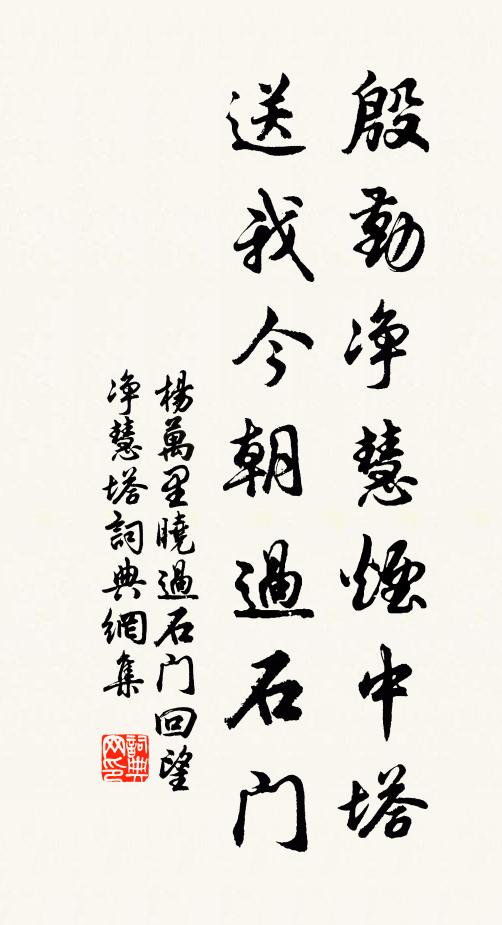 殷勤净慧煙中塔
送我今朝過石门
楊萬里曉過石门回望
净慧塔詞典網集
詞典网印